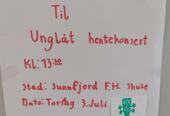 Til
Unglåt hentekonsert
Kl: 13.30
Stad: Sunnfjord F.H. Skule
Dato: Torsdag 3. Juli